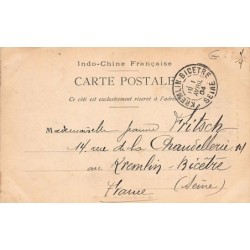 Indo-Chine Française
CARTE POSTALE
Ce côté est exclusivement réservé à l'adresse
KREMLIN-BICETRE
SEINE
04
Mademoiselle Jeanne Fritsch
14 rue de la Chaudellerie 14
au Kremlin-Bicêtre
France (Seine)